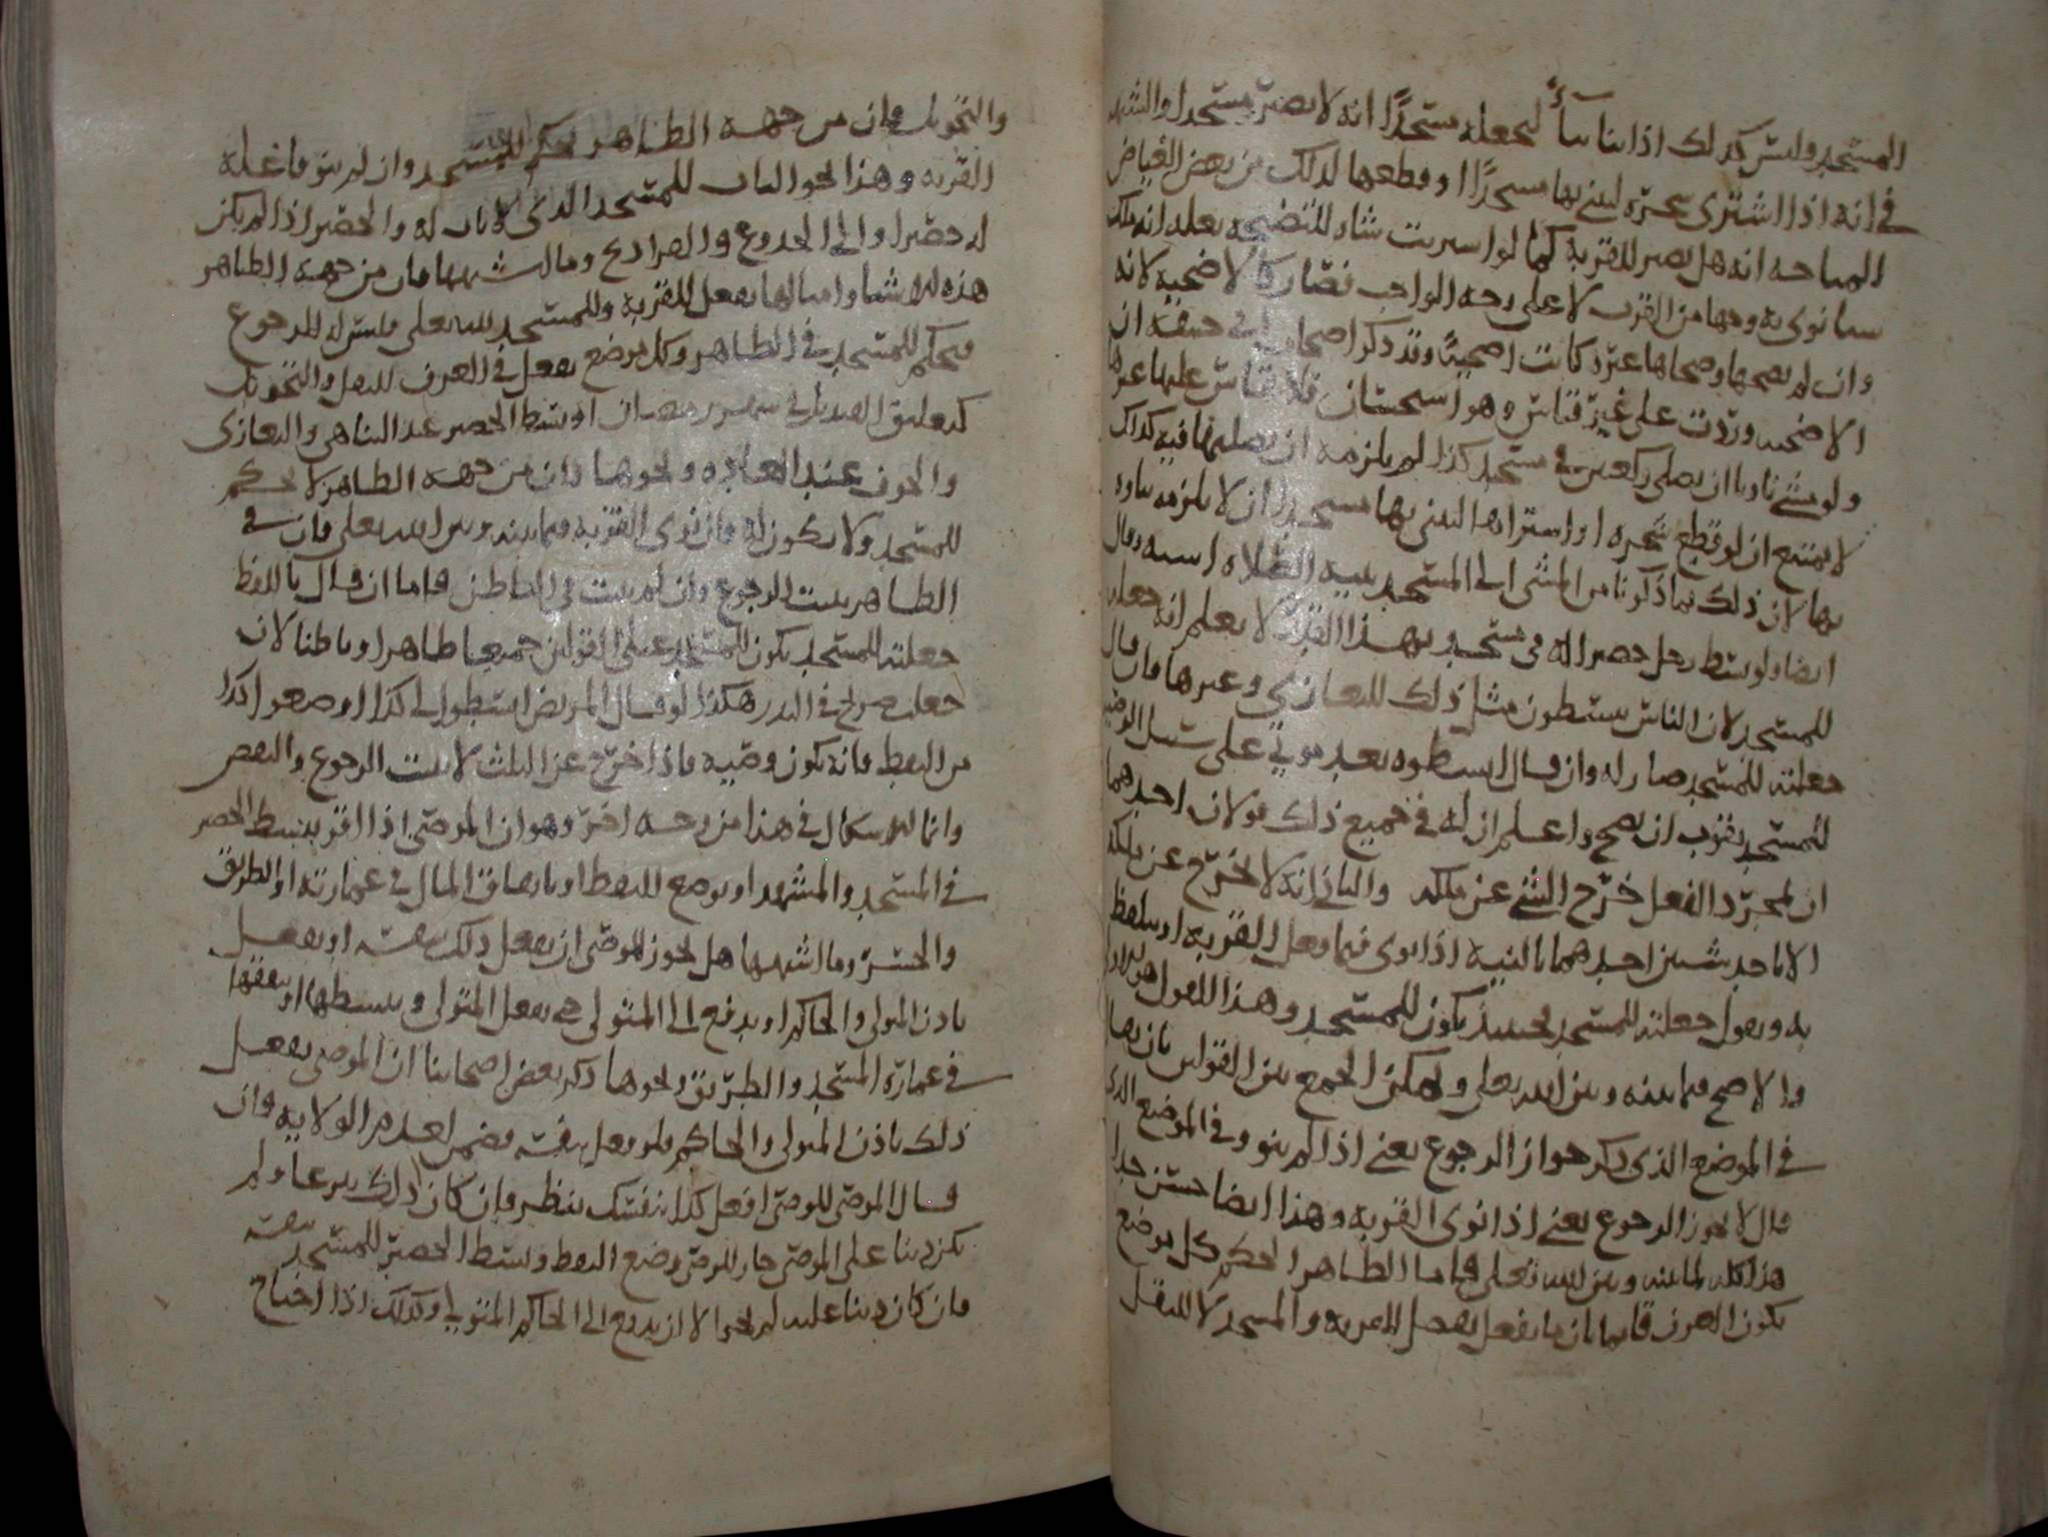 المسجد وليس كذلك اذا بنا بناءً ليجعله مسجدًا انه لا يصير مسجدا والشبهه
في انه اذا اشترى شجره ليبني بها مسجدًا او قطعها لذلك من بعض الغياض
المباحه انه هل يصير للقربة كما لو اشتريت شاه للتضحيه
بها نوى به وجها من القرب لا على وجه الواجب فصار كالاضحية لانه
وان لم يضحها وضحاها غيره كانت اضحية وقد ذكر اصحاب ابي حنيفه ان
الاضحيه وردت على غير قياس وهو استحسان فلا يقاس عليها غيرها
ولو مشى ناويا ان يصلي ركعتين في مسجد كذا لم يلزمه ان يصليهما فيه كذلك
لا يمتنع ان لو قطع شجره او اشتراها ليبني بها مسجدا ان لا يلزمه بناوه
بها لان ذلك بما ذكرنا من المشى الى المسجد بنية الصلاه اشبه وقال
ايضا ولو بسط رجل حصيرا له في مسجد وبهذا القدر لا يعلم انه جعله
للمسجد لان الناس يبسطون مثل ذلك للتعازي وغيرها فان قال
جعلته للمسجد صار له وان قال ابسطوه بعد موتي على سبيل الوصيه
للمسجد يقرب ان يصح واعلم ان له في جميع ذلك قولان احدهما
ان بمجرد الفعل خرج الشي عن ملكه والثاني انه لا يخرج عن ملكه
الا باحد شيئين احدهما بالنية اذا نوى فيما فعل القربه او بلفظ
به ويقول جعلته للمسجد فحينئذ يكون للمسجد وهذا القول هو الاولى
والاصح فيما بينه وبين الله تعلى ويمكن الجمع بين القولين بان يقال
في الموضع الذي ذكر جواز الرجوع يعني اذا لم ينو وفي الموضع الذي
قال لا يجوز الرجوع يعني اذا نوى القربه وهذا ايضا حسن جدا
هذا كله فيما بينه وبين الله تعلى فاما الظاهر الحكم كل موضع
يكون العرف قايما بان ما يفعل يفعل للقربه والمسجد لا للنقل
والتحويل فان من جهة الظاهر يحكم للمسجد وان لم ينو فاعله
القربه وهذا نحو الباب للمسجد الذي لا باب له والحصير اذا لم يكن
له حصيرا والى الجدوع والصراديح وما اشبهها فان من جهة الظاهر
هذه الاشيا وامثالها يفعل للقربة وللمسجد لله تعلى وليس له الرجوع
فيحكم للمسجد في الظاهر وكل موضع يفعل في العرف للنقل والتحويل
كتعليق القنديل في شهر رمضان او بسط الحصير عند التناهي والتعازي
والخوف عند العاده ونحوها فان من جهة الظاهر لا يحكم
للمسجد ولا يكون له فان نوى القربه فيما بينه وبين الله تعلى فان في
الظاهر يثبت الرجوع وان لم يثبت في الباطن فاما ان قال باللفظ
جعلته للمسجد يكون للمسجد على القولين جميعا ظاهرا وباطنا لان
جعلت صريح في النذر هكذا لو قال المريض ابسطوا لي كذا او ضعوا كذا
من النفط فانه يكون وصيه فاذا خرج عن الثلث لا يثبت الرجوع والنقض
وانما الاشكال في هذا من وجه اخر وهو ان الموصى اذا اقر ببسط الحصير
في المسجد والمشهد او بوضع النفط او بانفاق المال في عمارته او الطريق
والجسر وما اشبهها هل يجوز للموصى ان يفعل ذلك بنفسه او يفعل
باذن المتولى والحاكم او يدفع الى المتولى حتى يفعل المتولى ويبسطها او ينفقها
في عمارة المسجد والطريق ونحوها ذكر بعض اصحابنا ان الموصى يفعل
ذلك باذن المتولى والحاكم ولو فعل بنفسه فيضمن لعدم الولايه وان
قال الموصى للوصى افعل كذا بنفسك ينظر فان كان ذلك تبرعا ولم
يكن دينا على الموصى جاز للوصى وضع النفط وبسط الحصير للمسجد بنفسه
فان كان دينا عليه لم يجز الا ان يدفع الى الحاكم او المتولى وكذلك اذا احتاج